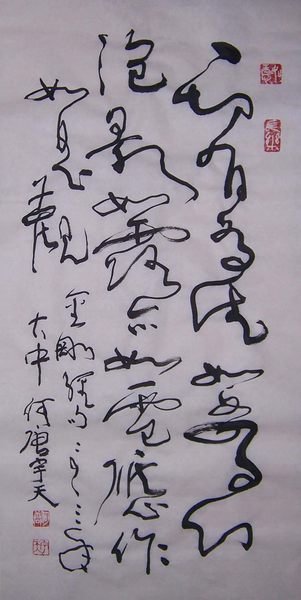 一切有為法如夢幻
泡影如露亦如電應作
如是觀
金剛經句
何唐宇天